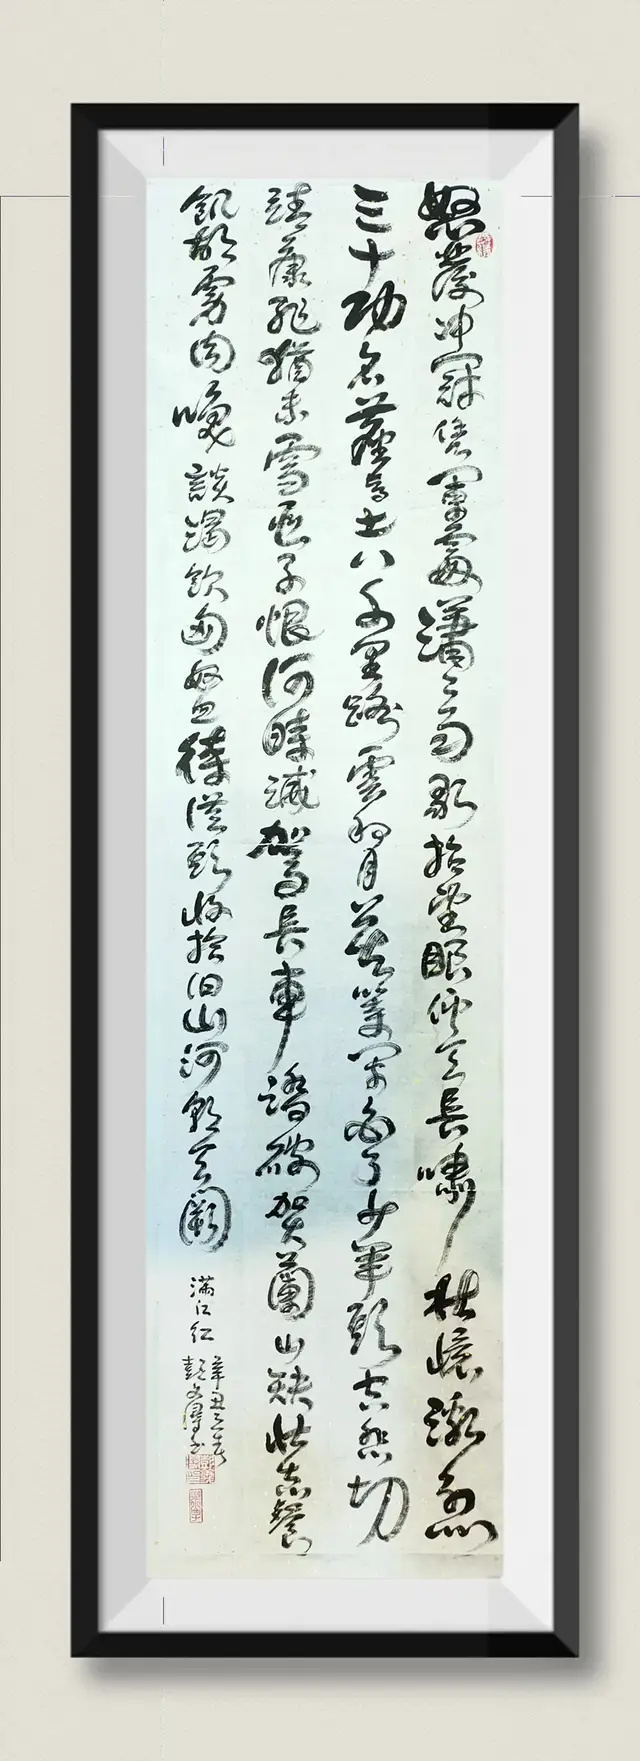 怒髮冲冠凭闌處瀟〻雨歇抬望眼仰天長嘯壯懷激烈
三十功名塵與土八千里路雲和月莫等闲白了少年頭空悲切
靖康耻猶未雪臣子恨何時滅駕長車踏破賀蘭山缺壯志餐
飢胡虜肉咲談渴飲匈奴血待從頭收拾旧山河朝天闕
满江红
辛丑之春
彭文书